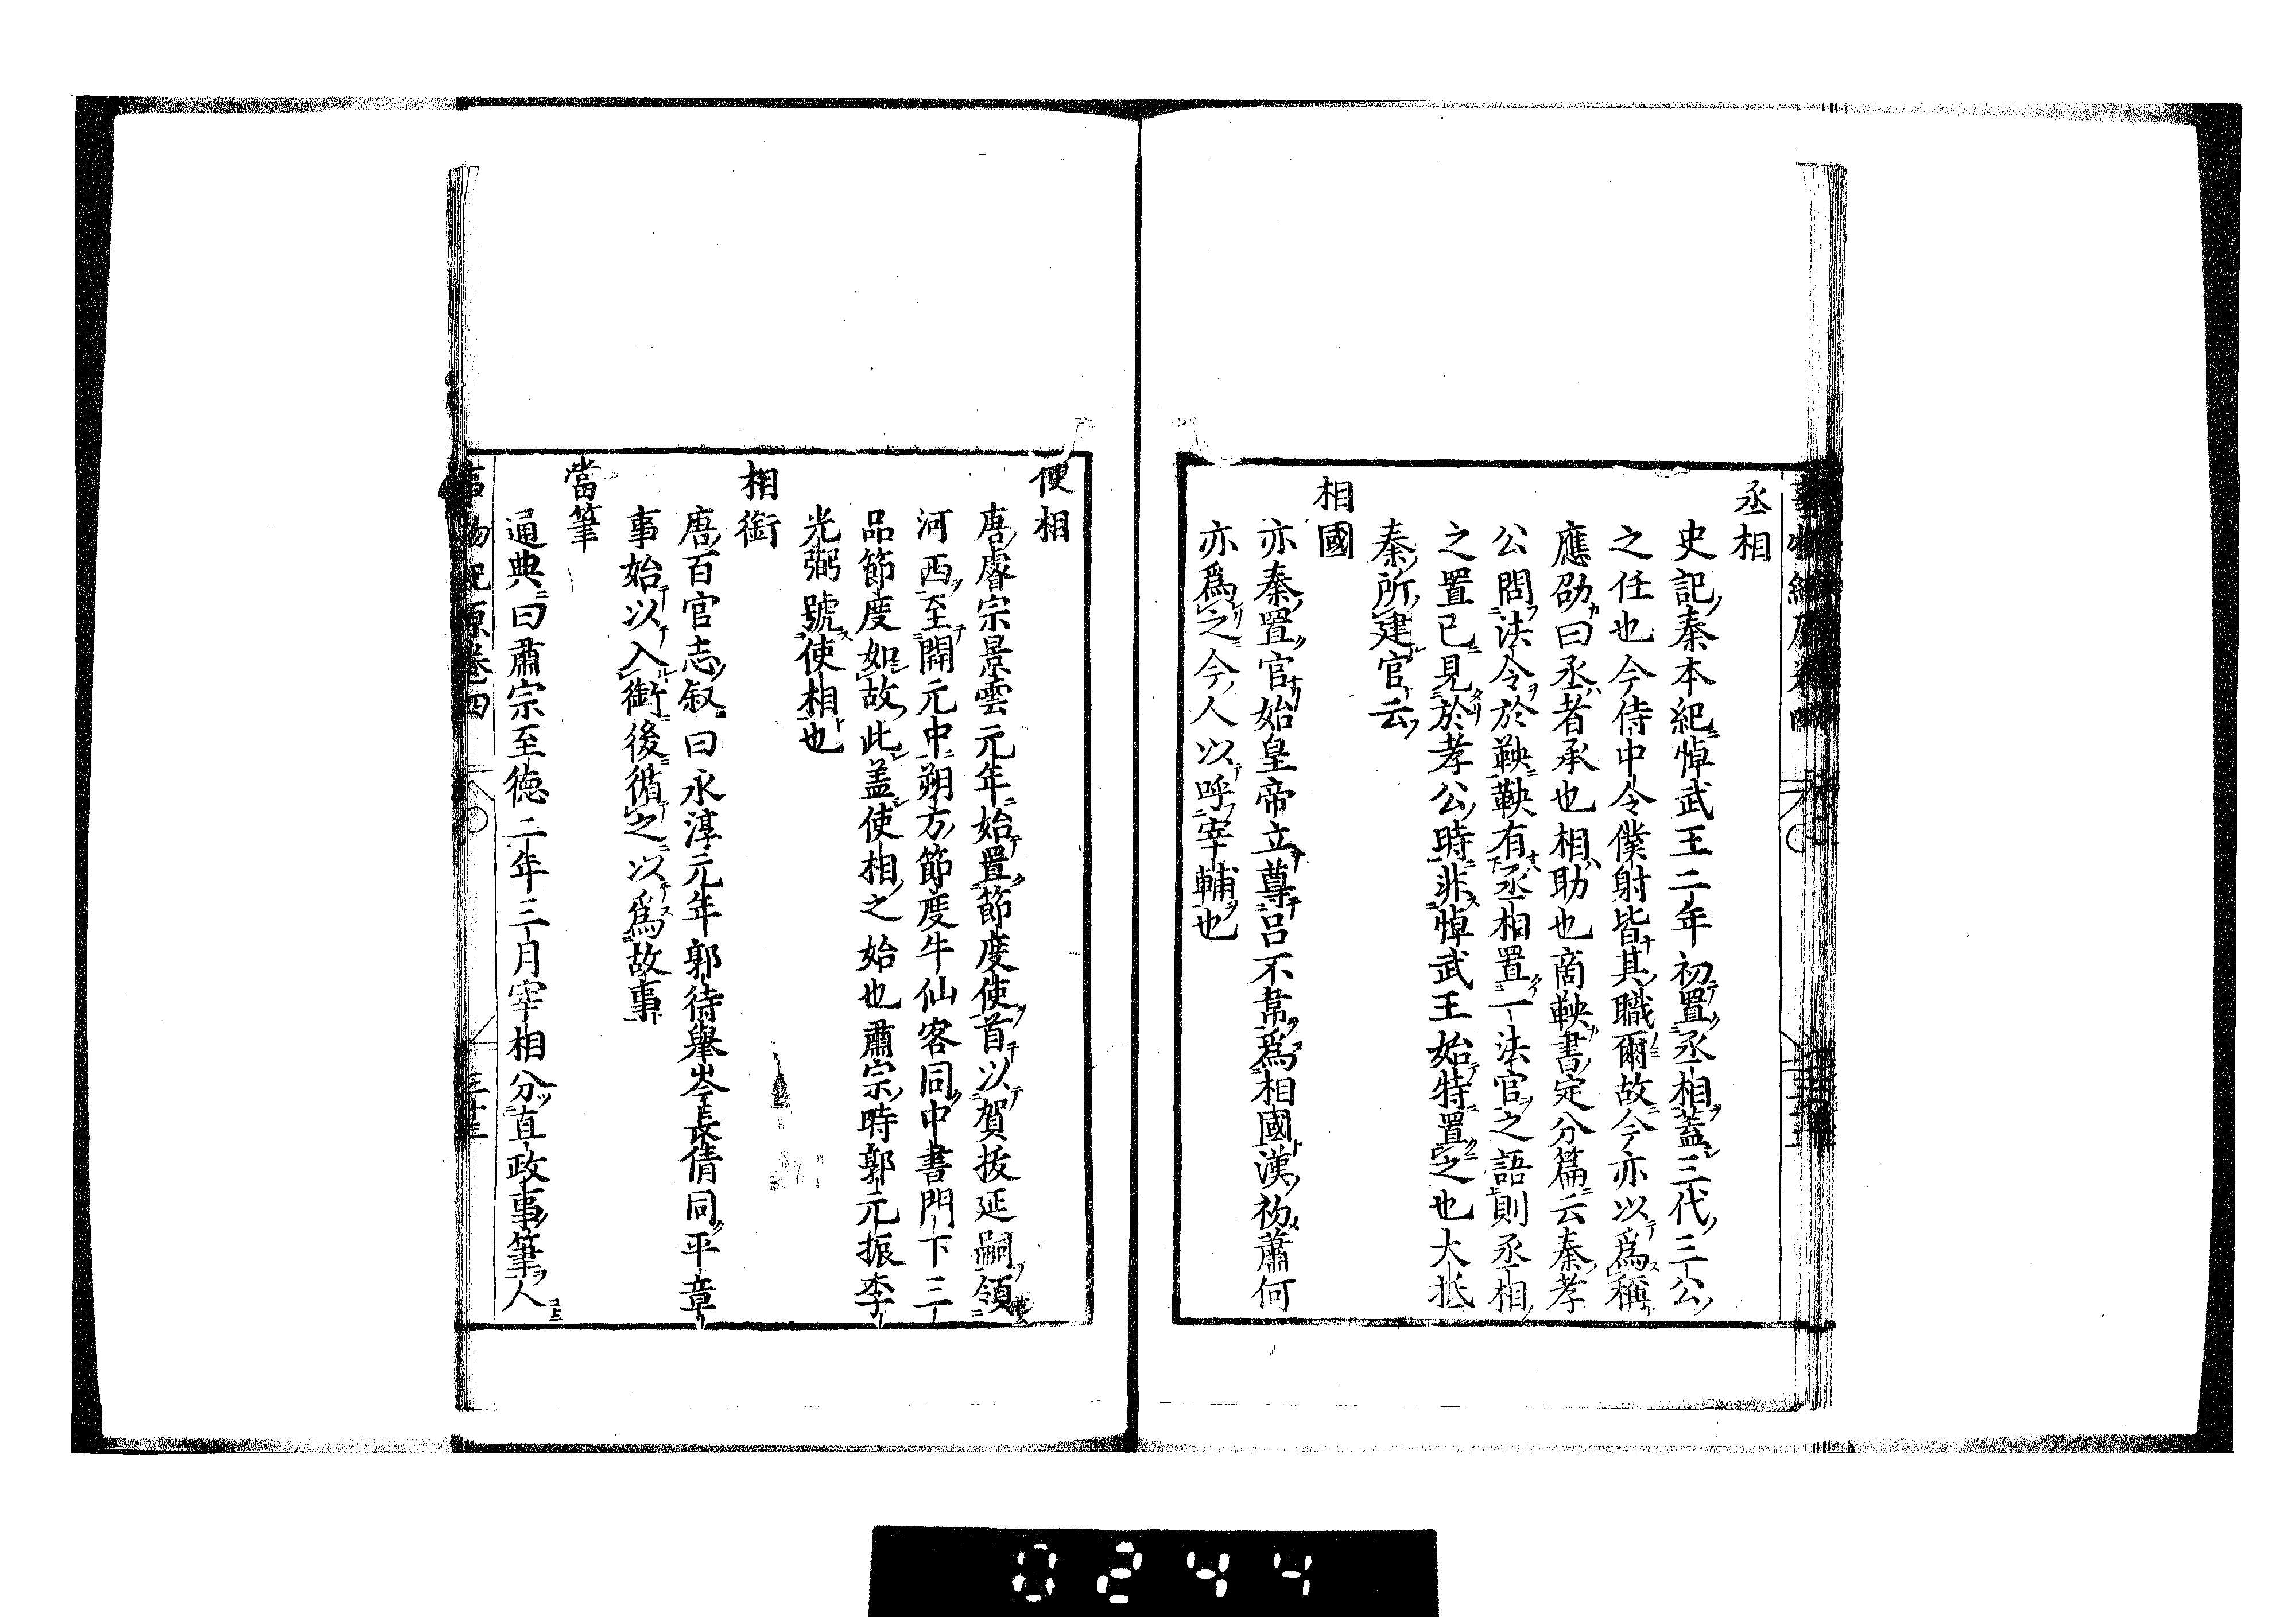 事物紀原卷四
丞相
史記秦本紀悼武王二年初置丞相蓋三代三公
之任也今侍中令僕射皆其職爾故今亦以爲稱
應劭曰丞者承也相助也商鞅書定分篇云秦孝
公問法令於鞅鞅有丞相置一法官之語則丞相
之置已見於孝公時非悼武王始特置之也大抵
秦所建官云
相國
亦秦置官始皇帝立尊呂不韋爲相國漢初蕭何
亦爲之今人以呼宰輔也
使相
唐睿宗景雲元年始置節度使首以賀拔延嗣領
河西至開元中朔方節度牛仙客同中書門下三
品節度如故此盖使相之始也肅宗時郭元振李
光弼號使相也
相銜
唐百官志叙曰永淳元年郭待舉岑長倩同平章
事始以入銜後循之以爲故事
當筆
通典曰肅宗至德二年三月宰相分直政事筆人
事物紀原卷四 三十三
0244